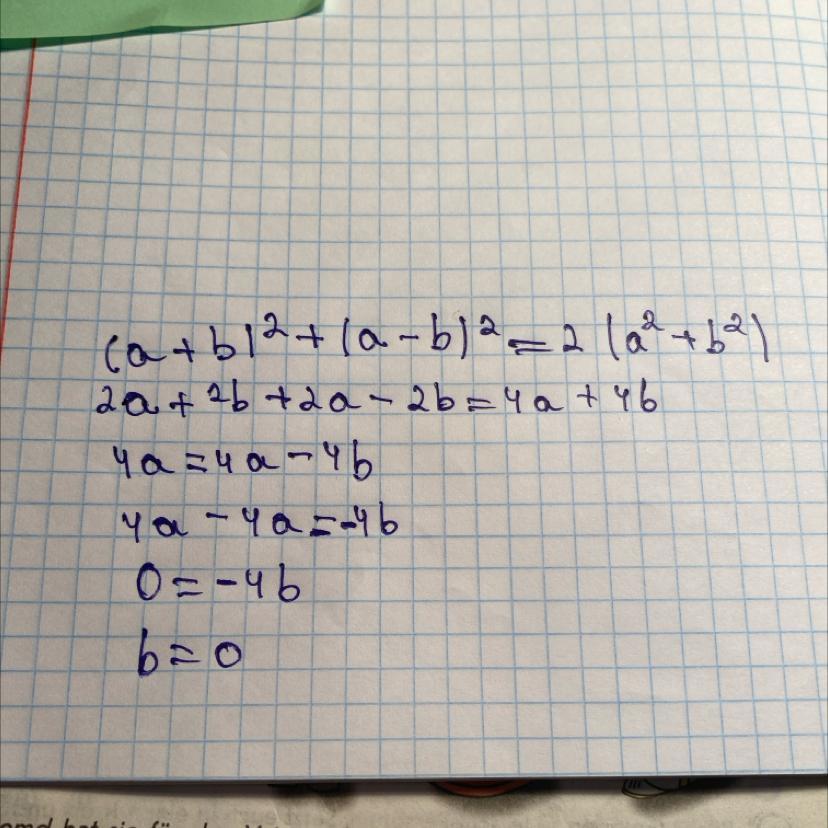 (a+b)²+(a-b)²=2(a²+b²)
2a+2b+2a-2b=4a+4b
4a=4a-4b
4a-4a=-4b
0=-4b
b=0